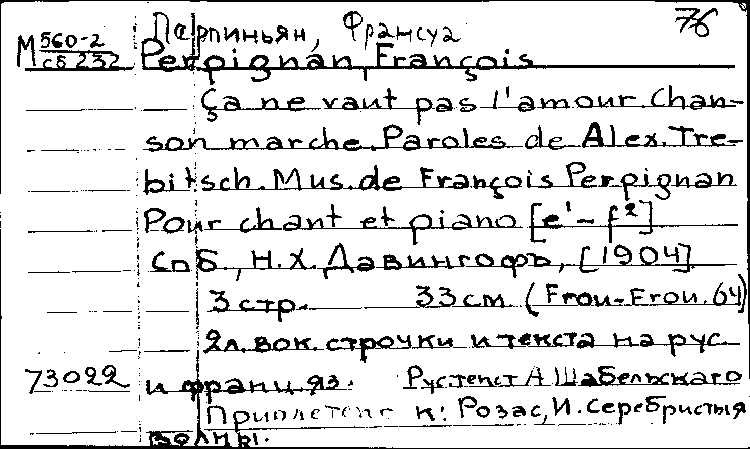 Перпиньян, Франсуа 76
М 560-2
сб 232 Perpignan, François
Ça ne vaut pas l'amour. Chan-
son marche. Paroles de Alex. Tre-
bitsch. Mus. de François Perpignan
Pour chant et piano [e¹ – f²]
Спб., Н. Х. Давингофъ, [1904].
3 стр. 33 см (Frou-Frou. 64)
2 л. вок. строчки и текста на рус.
73022 и франц. яз. Рус. текст А. Шабельскаго
Приплетено к: Розас, И. Серебристыя
волны.